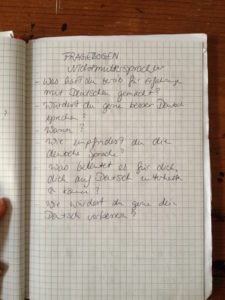 FRAGEBOGEN
Nichtmuttersprachler
- Was hast du bisher für Erfahrungen
mit Deutschen gemacht?
- Würdest du gerne besser Deutsch
sprechen?
- Warum?
- Wie empfindest du die
deutsche Sprache?
- Was bedeutet es für dich,
dich auf Deutsch unterhalten
zu können?
Wie würdest du gerne dein
Deutsch verbessern?